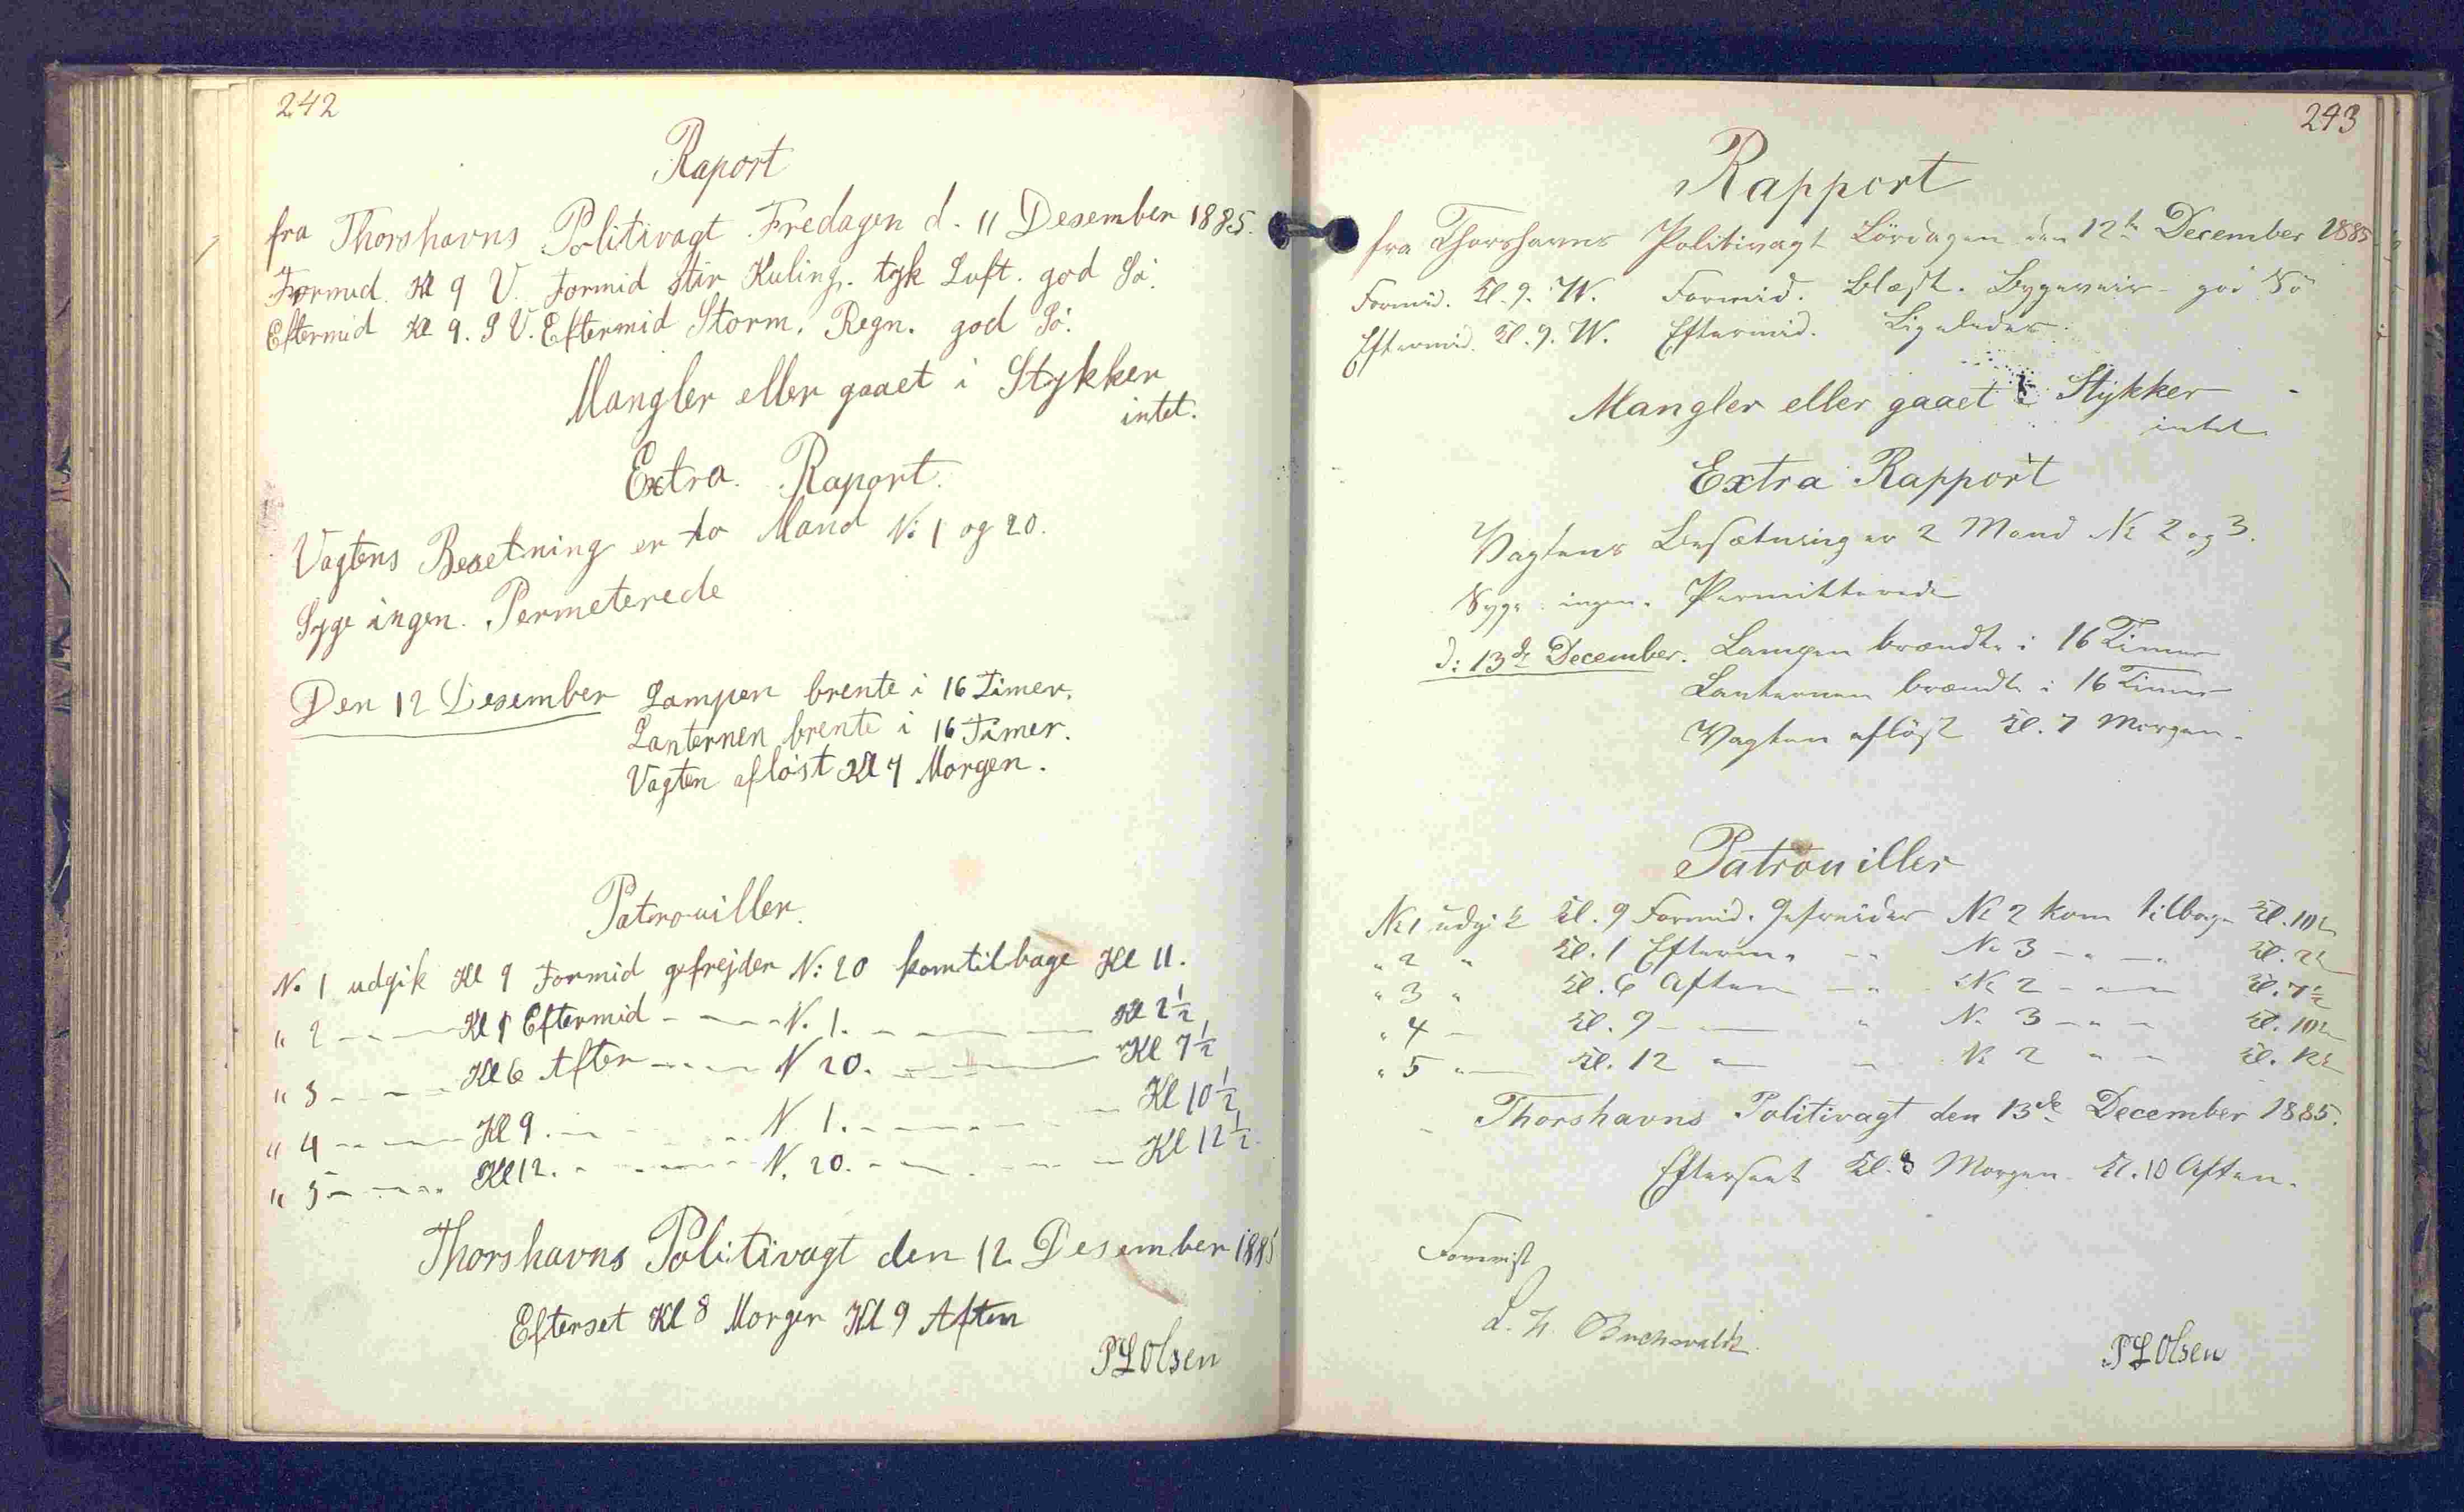 242
Raport
fra Thorshavns Politivagt Fredagen d. 11 Desember 1885.
Formid. Kl 9 V. Formid stiv Kuling. tyk Luft. god Sö.
Eftermid Kl 9. S V. Eftermid Storm. Regn. god Sö.
Mangler eller gaaet i Stykker
intet.
Extra. Raport.
Vagtens Besetning er to Mand N: 1 og 20.
Syge ingen. Permeterede
Den 12 Desember Lampen brente i 16 Timer.
Lanternen brente i 16 Timer.
Vagten aflöst Kl 7 Morgen.
Patrouiller.
N. 1 udgik Kl 9 Formid gefrejder N: 20 kom tilbage Kl 11.
" 2 — — Kl 1 Eftermid — — N. 1. — — Kl 2½
" 3 — — Kl 6 Aften — — N 20. — — Kl 7½
" 4 — — Kl 9. — — N 1. — — Kl 10½
" 5 — — Kl 12. — — N. 20. — — Kl 12½.
Thorshavns Politivagt den 12 Desember 1885
Efterset Kl 8 Morgen Kl 9 Aften
P L Olsen
243
Rapport
fra Thorshavns Politivagt Lördagen den 12te December 1885
Formid. Kl. 9. W. Formid. Blæst. Bygeveir - god Sö
Eftermid. Kl. 9. W. Eftermid. Ligeledes.
Mangler eller gaaet i Stykker
intet
Extra Rapport
Vagtens Besætning er 2 Mand No 2 og 3.
Syge ingen. Permitterede
D: 13de December. Lampen brændte i 16 Timer
Lanternen brændte i 16 Timer
Vagten aflöst Kl. 7 Morgen.
Patrouiller
No 1 udgik Kl. 9 Formid. Gefreider No 2 kom tilbage Kl. 10½
" 2 " Kl. 1 Efterm. — " No 3 — " — " Kl. 2½
" 3 " Kl. 6 Aften — " No 2 — " — Kl. 7½
" 4 — Kl. 9 — — " No 3 — " — Kl. 10½
" 5 " — Kl. 12 " — — No 2 " " — Kl. 12½
Thorshavns Politivagt den 13de December 1885.
Efterseet Kl. 8 Morgen Kl. 10 Aften.
P L Olsen